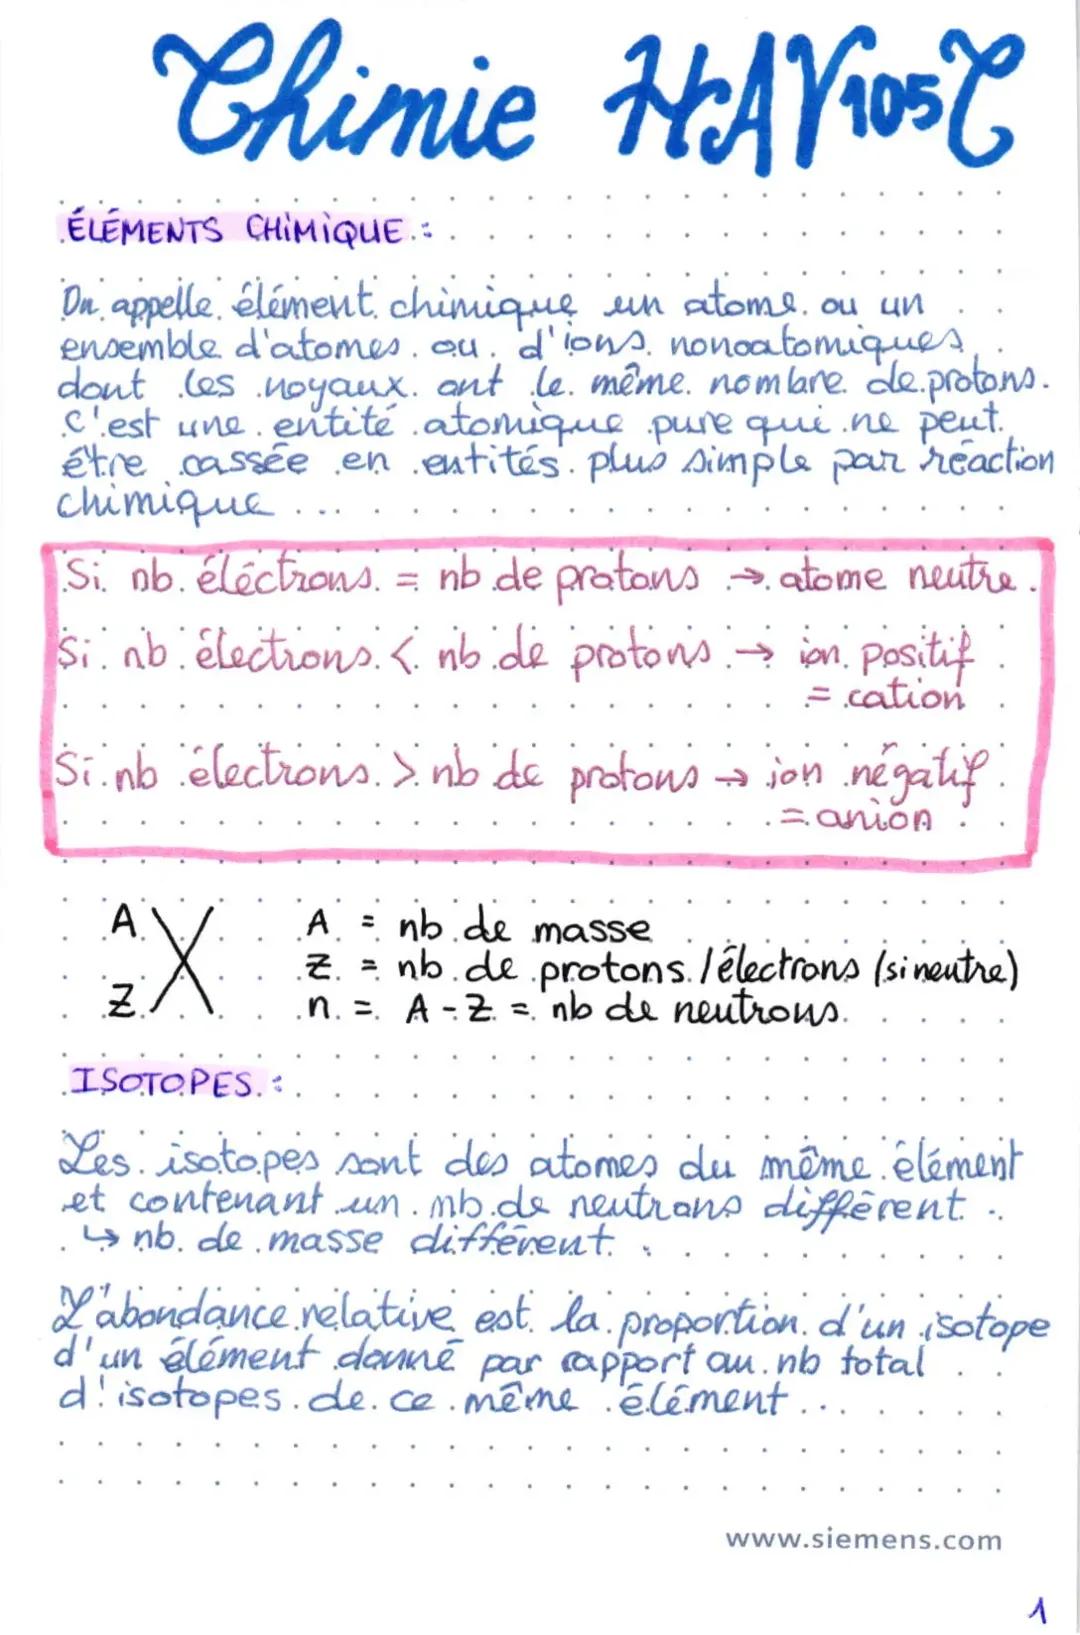 Chimie HAV105C
ÉLÉMENTS CHIMIQUE :
On appelle élément chimique un atome ou un
ensemble d'atomes ou d'ions nonoatomiques
dont les noyaux ont le même nombre de protons.
C'est une entité atomique pure qui ne peut
être cassée en entités plus simple par réaction
chimique ...
Si nb éléctrons = nb de protons → atome neutre.
Si nb électrons < nb de protons → ion positif
= cation
Si nb électrons > nb de protons → ion négatif
= anion
A X A = nb de masse
Z Z = nb de protons / électrons (si neutre)
n = A - Z = nb de neutrons.
ISOTOPES :
Les isotopes sont des atomes du même élément
et contenant un nb de neutrons différent.
↳ nb de masse différent.
L'abondance relative est la proportion d'un isotope
d'un élément donné par rapport au nb total
d'isotopes de ce même élément...
www.siemens.com
1